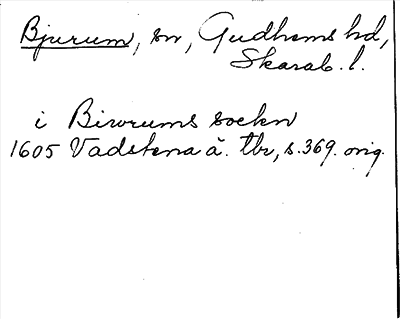 Bjurum, sn, Gudhems hd,
Skarab. l.
i Biwrums sockn
1605 Vadstena ä. tbr, s. 369. orig.